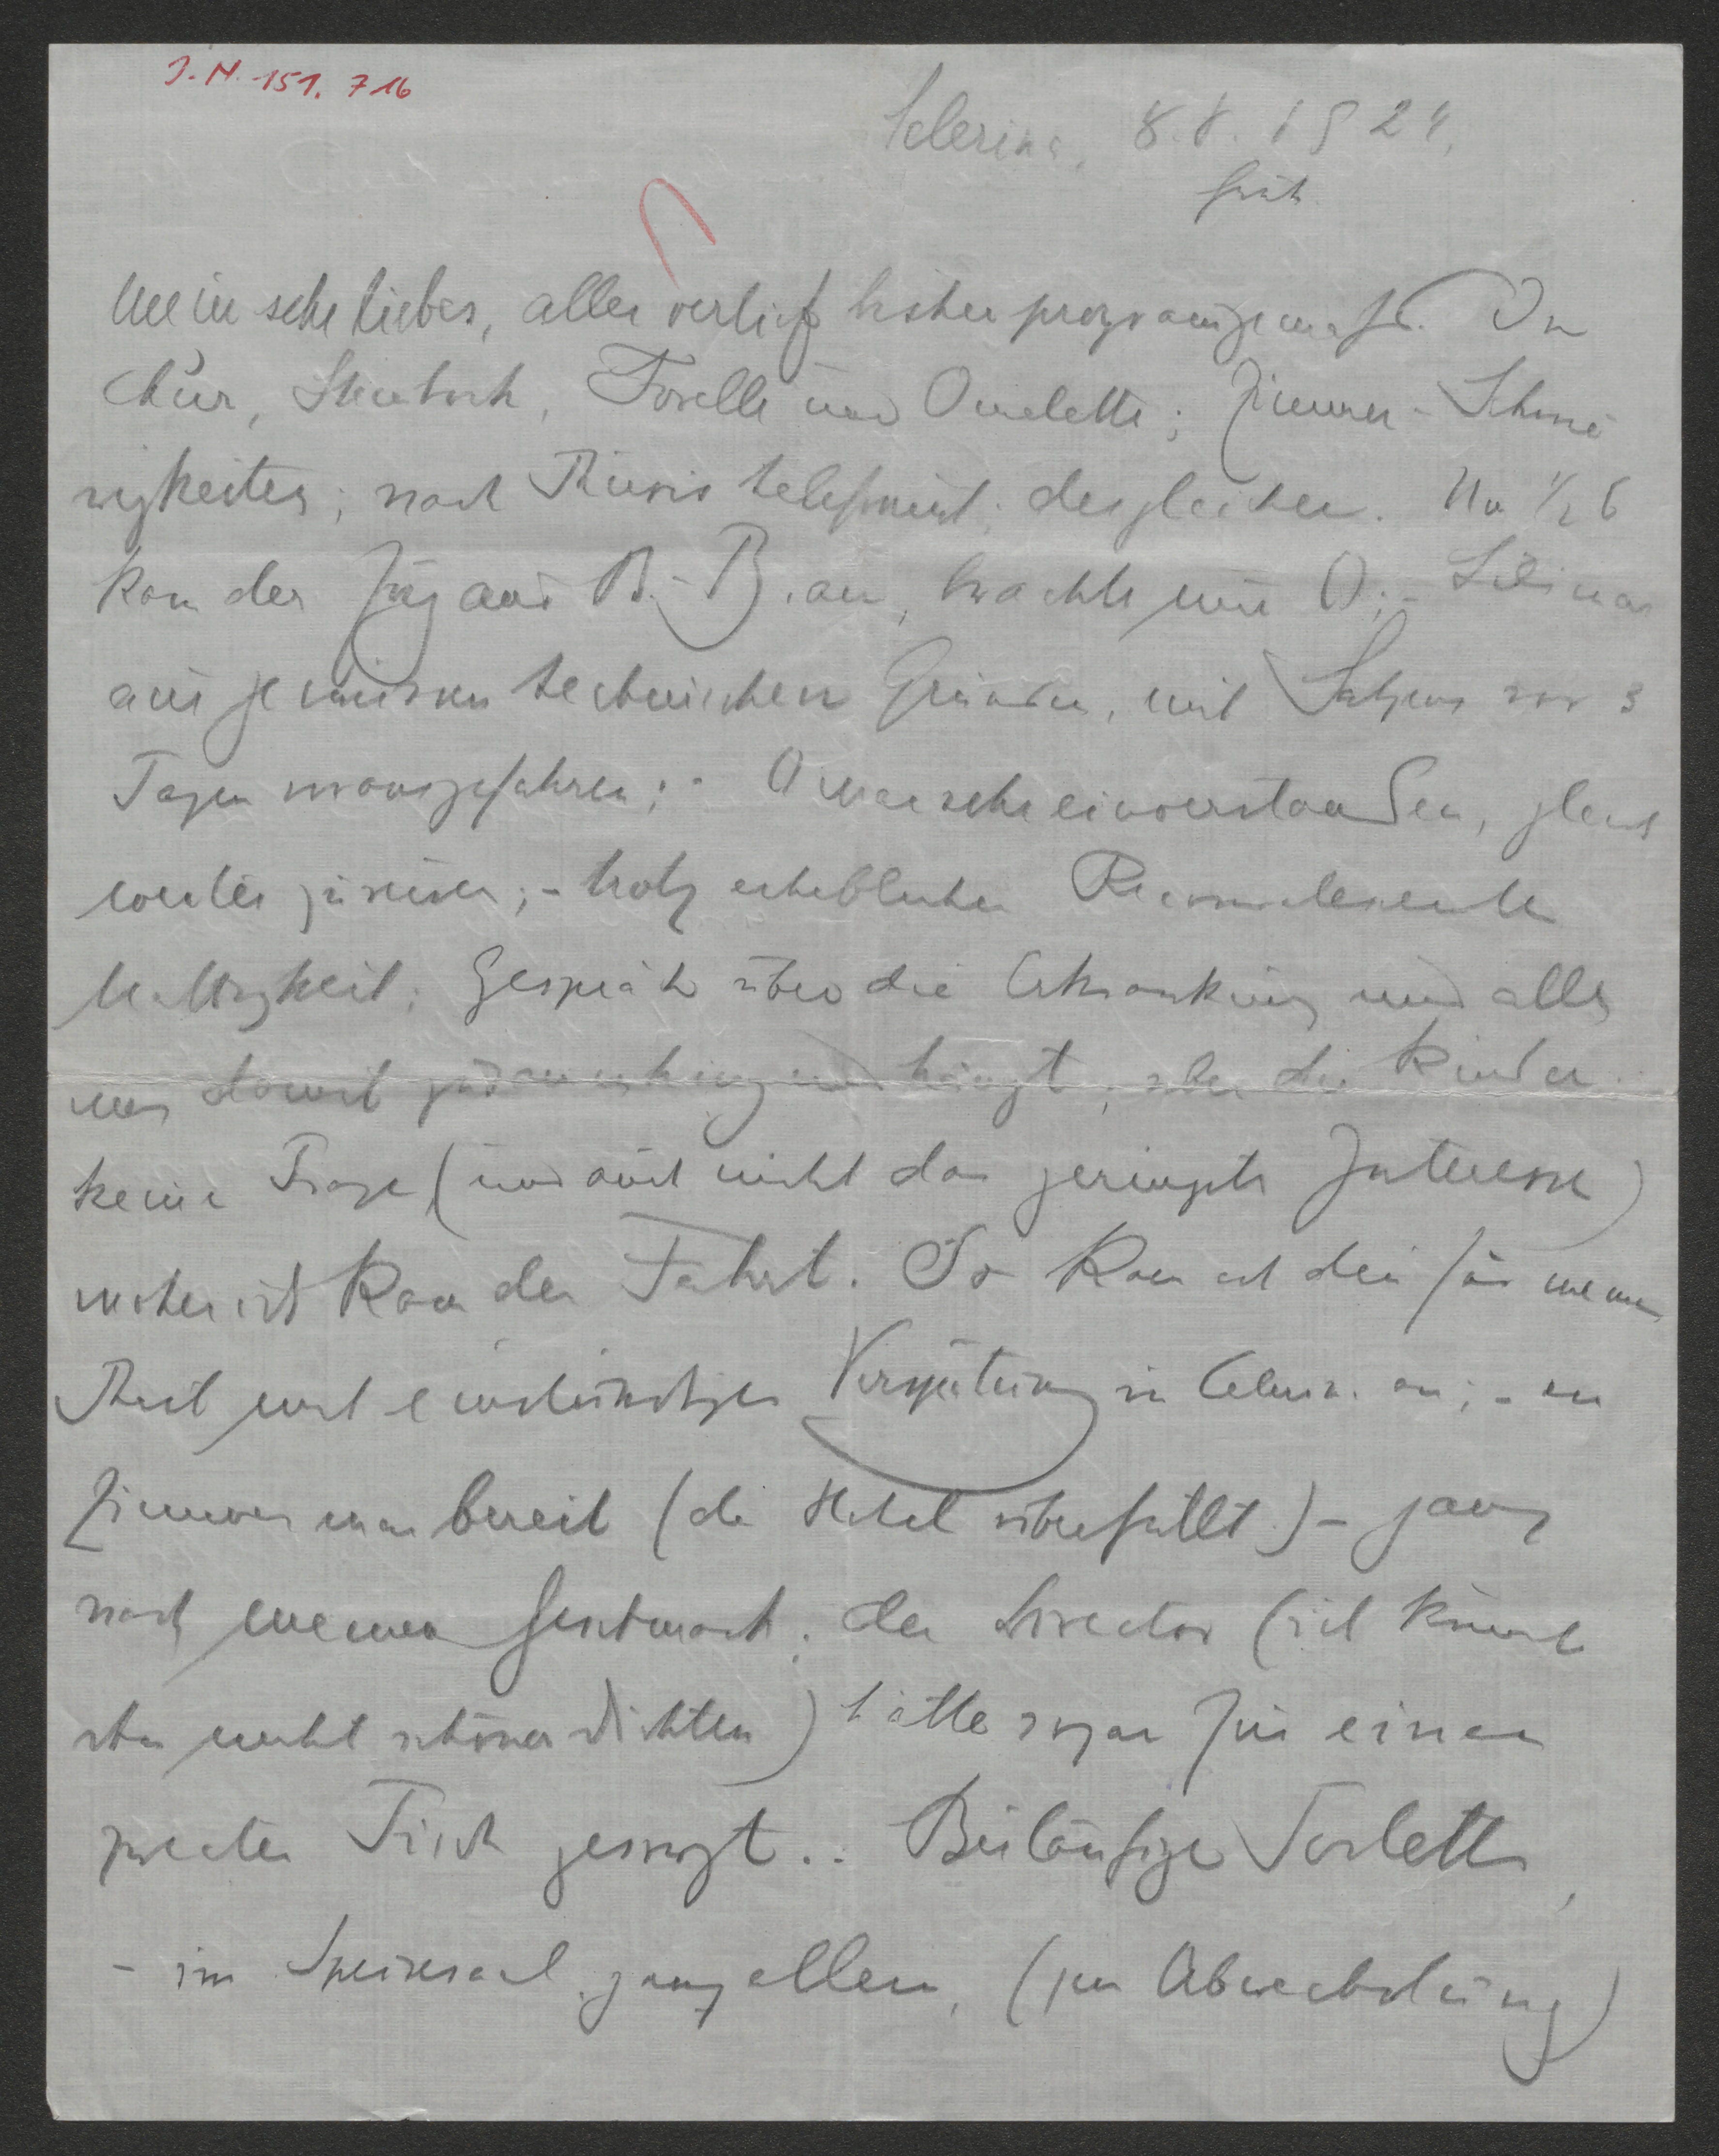 I. N. 151.716
Celerina, 8.8.1924.
früh
Mein sehr liebes, alles verlief bisher programgemäß. In
Chur, Steinbock, Forelle und Omelette; Zimmer-Schwie
rigkeiten; nach Thusis telefonirt; desgleichen. Um ½ 6
kam der Zug aus B.-B. an, brachte mir O;- Lili war
aus gewissen technischen Gründen, mit vor 3
Tagen vorausgefahren;- O war sehr einverstanden, gleich
weiter zu reisen;- trotz erheblicher Reconvalescenten
Mattigkeit; Gespräch über die Erkrankung und alles
was damit zusammenhing und hängt, über die Kinder.
keine Frage (und auch nicht das geringste Interesse)
woher ich kam der Fahrt. So kam ich denn für meinen
Theil mit einstündiger Verspätung in Celerina an;- ein
Zimmer war bereit (das Hotel überfüllt)- ganz
nach meinem Geschmack; der Director (ich könnte
ihn nicht schöner dichten) hatte sogar für einen
zweiten Tisch gesorgt.. Beiläufige Toilette,
- im Speisesaal ganz allein, (zur Abwechslung)